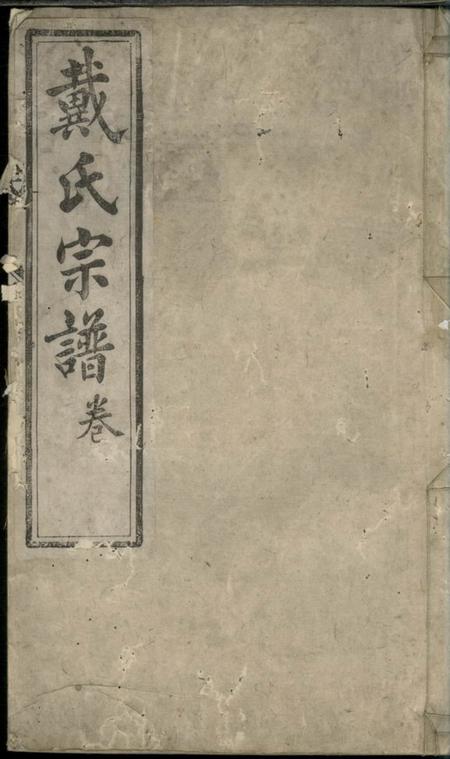 戴氏宗譜卷